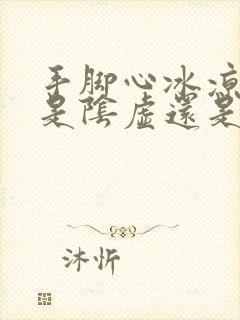 手脚心冰凉
是陰虛還是
沐忻